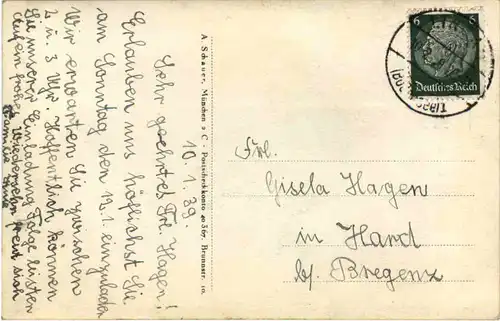 10. 1. 39.
Sehr geehrtes Frl. Hagen!
Erlauben uns höflichst Sie
am Sonntag den 12.1. einzuladen
Wir erwarten Sie zwischen
2 u. 3 Uhr. Hoffentlich können
Sie unserer Einladung Folge leisten
Auf ein frohes Wiedersehn freut sich
Familie
A. Schauer, München 2 C - Postscheckkonto 40 367 Brunnstr. 10.
6 6
Deutsches Reich
Frl.
Gisela Hagen
in Hard
bz. Bregenz